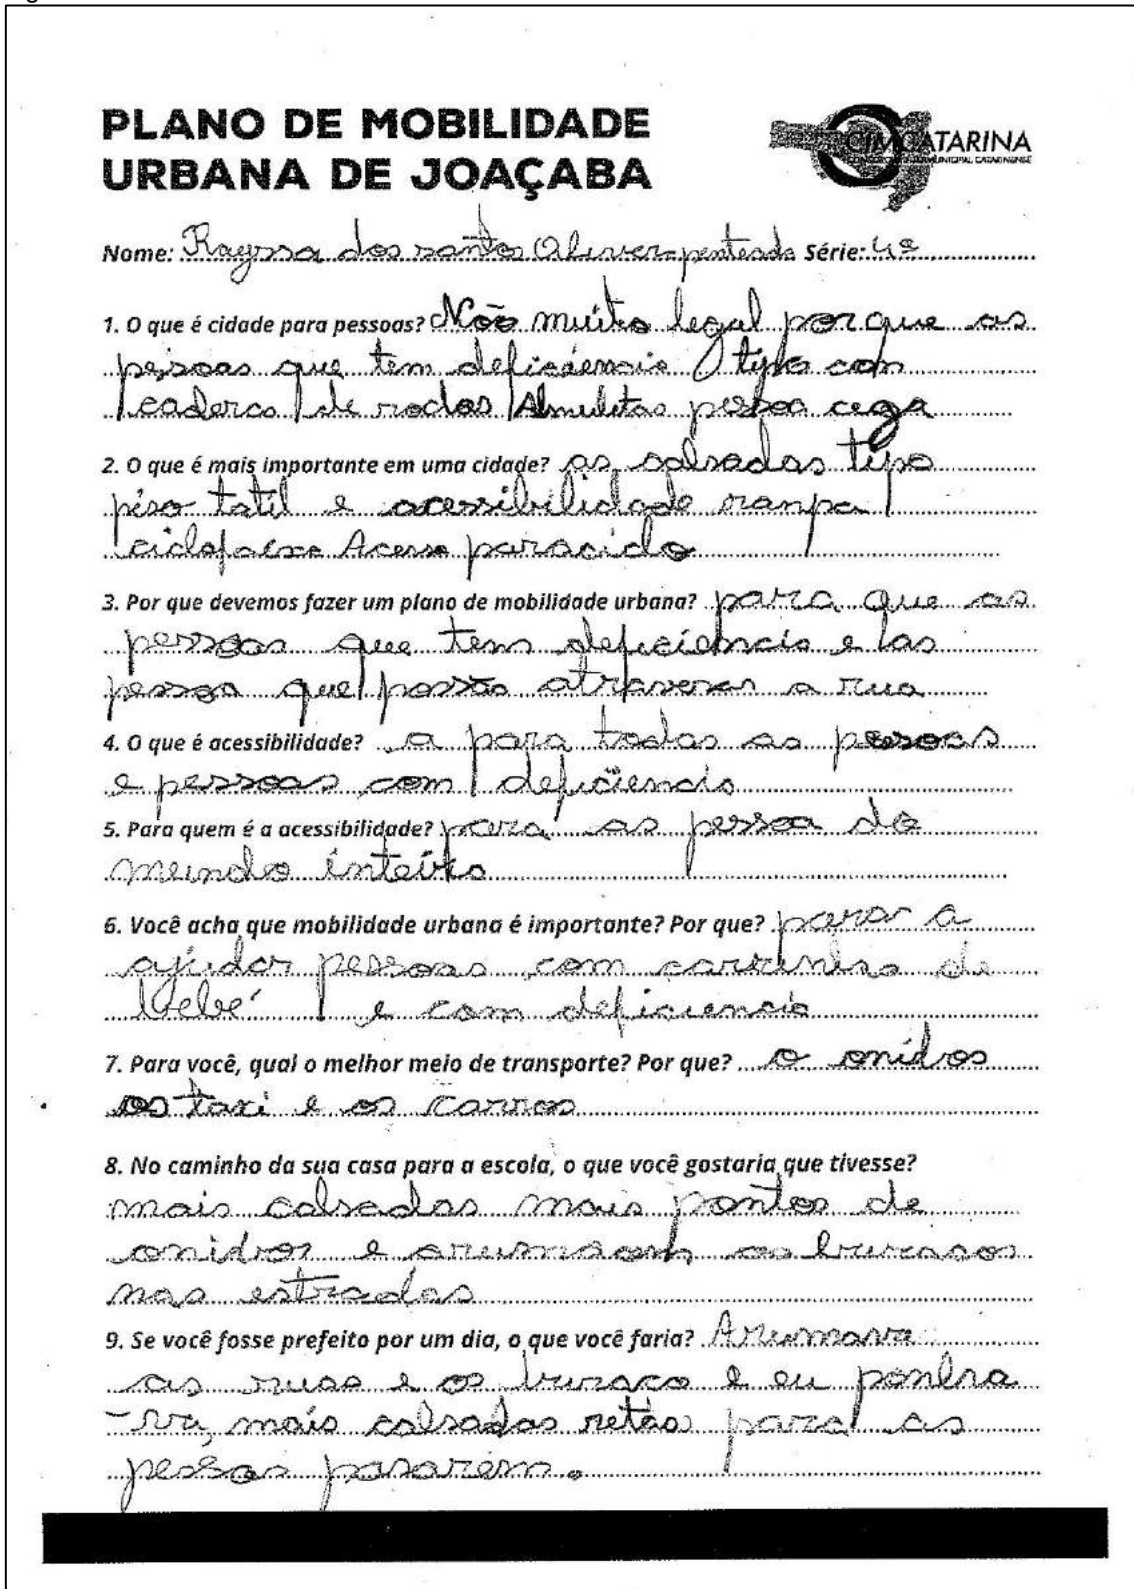 PLANO DE MOBILIDADE
URBANA DE JOAÇABA
CIMCATARINA
Nome: Rayssa dos santos Série: 4ª
1. O que é cidade para pessoas? Não muito legal porque as
pessoas que tem tipo con
caderas de rodas Almuletas pessoa cega
2. O que é mais importante em uma cidade? as calsadas tipo
piso tatil e acessibilidade ranpa
ciclofaixa Acesso
3. Por que devemos fazer um plano de mobilidade urbana? para que as
pessoas que tem e las
pessoa que possão a rua
4. O que é acessibilidade? a para todas as pessoas
e pessoas com deficiencia
5. Para quem é a acessibilidade? para as pessoa do
mundo inteiro
6. Você acha que mobilidade urbana é importante? Por que? parar a
ajudar pessoas com carrinhro de
bebé e com deficiencia
7. Para você, qual o melhor meio de transporte? Por que? o onidros
os taxi e os carros
8. No caminho da sua casa para a escola, o que você gostaria que tivesse?
mais calsadas mais pontos de
e os
nas estradas
9. Se você fosse prefeito por um dia, o que você faria? Arumava
as ruas e os buraco e eu ponhra
-va, mais calsadas retas para as
pessoas pasarem.